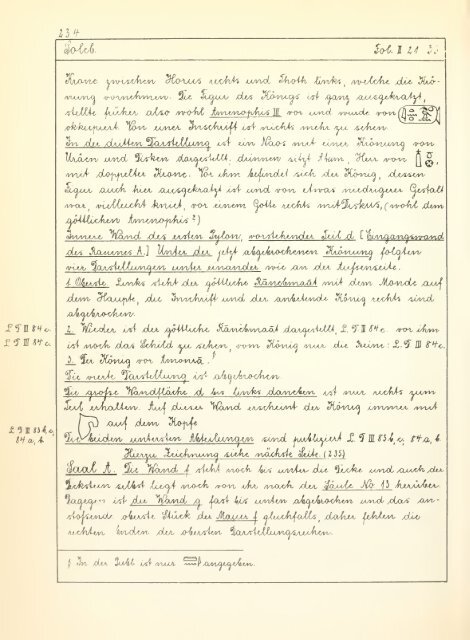 234
Soleb. Fol. II 21 33
Krone zwischen Horus rechts und Thoth links, welche die Krö-
nung vornehmen. Die Figur des Königs ist ganz ausgekratzt,
stellte früher also wohl Amenophis III vor und wurde von
okkupiert Von einer Inschrift ist nichts mehr zu sehen.
In der dritten Darstellung ist ein Naos mit einer Krönung von
Uräen und Disken dargestellt, drinnen sitzt Atum, Herr von
mit doppelter Krone. Vor ihm befindet sich der König, dessen
Figur auch hier ausgekratzt ist und von etwas niedrigerer Gestalt
war, vielleicht kniet, vor einem Gotte rechts mit Diskus, (wohl dem
göttlichen Amenophis?)
Innere Wand des ersten Pylon, vorstehender Teil d [Eingangswand
des Raumes A.] Unter der jetzt abgebrochenen Krönung folgten
vier Darstellungen unter einander wie an der Aufsenseite.
1 Oberste. Links steht der göttliche Ranebmaat mit dem Monde auf
dem Haupte, die Inschrift und der anbetende König rechts sind
abgebrochen.
L D III 84 c. 2. Wieder ist der göttliche Ranebmaat dargestellt, L D III 84 c vor ihm
L D III 84 c. ist noch das Schild zu sehen, vom König nur die Beine: L D III 84 c.
3. Der König vor Amonra. 1
Die vierte Darstellung ist abgebrochen.
Die große Wandfläche d bis links daneben ist nur rechts zum
Teil erhalten. Auf dieser Wand erscheint der König immer mit
auf dem Kopfe
L D III 83 b, c, Die beiden untersten Abteilungen sind publiziert L D III 83 b, c, 84 a, b.
84 a, b. Hierzu Zeichnung siehe nächste Seite (235)
Saal A. Die Wand f steht noch bis unter die Decke und auch der
Deckstein selbst liegt noch von ihr nach der Säule No 13 herüber
Dagegen ist die Wand g fast bis unten abgebrochen und das an-
stoßende oberste Stück der Mauer f gleichfalls, daher fehlen die
rechten Enden der obersten Darstellungsreihen.
1 In der Publ ist nur angegeben.